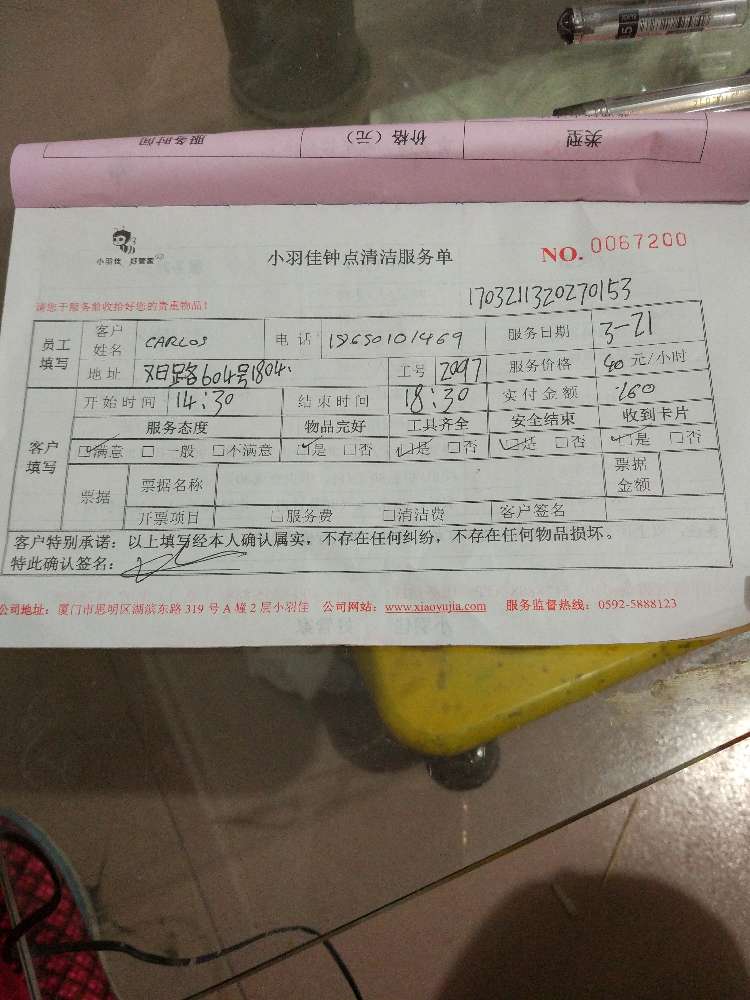 服务时间 价格（元） 类型
小羽佳 好管家
小羽佳钟点清洁服务单 NO. 0067200
1703211320270153
请您于服务前收拾好您的贵重物品！
员工填写 客户姓名 CARLOS 电话 18650101469 服务日期 3-21
地址 604号1804. 工号 2097 服务价格 40 元/小时
客户填写 开始时间 14:30 结束时间 18:30 实付金额 160
服务态度 物品完好 工具齐全 安全结束 收到卡片
☑满意 □一般 □不满意 ☑是 □否 ☑是 □否 ☑是 □否 ☑是 □否
票据 票据名称 票据金额
开票项目 □服务费 □清洁费 客户签名
客户特别承诺：以上填写经本人确认属实，不存在任何纠纷，不存在任何物品损坏。
特此确认签名：
公司地址：厦门市思明区湖滨东路 319 号 A 幢 2 层小羽佳 公司网站：www.xiaoyujia.com 服务监督热线：0592-5888123